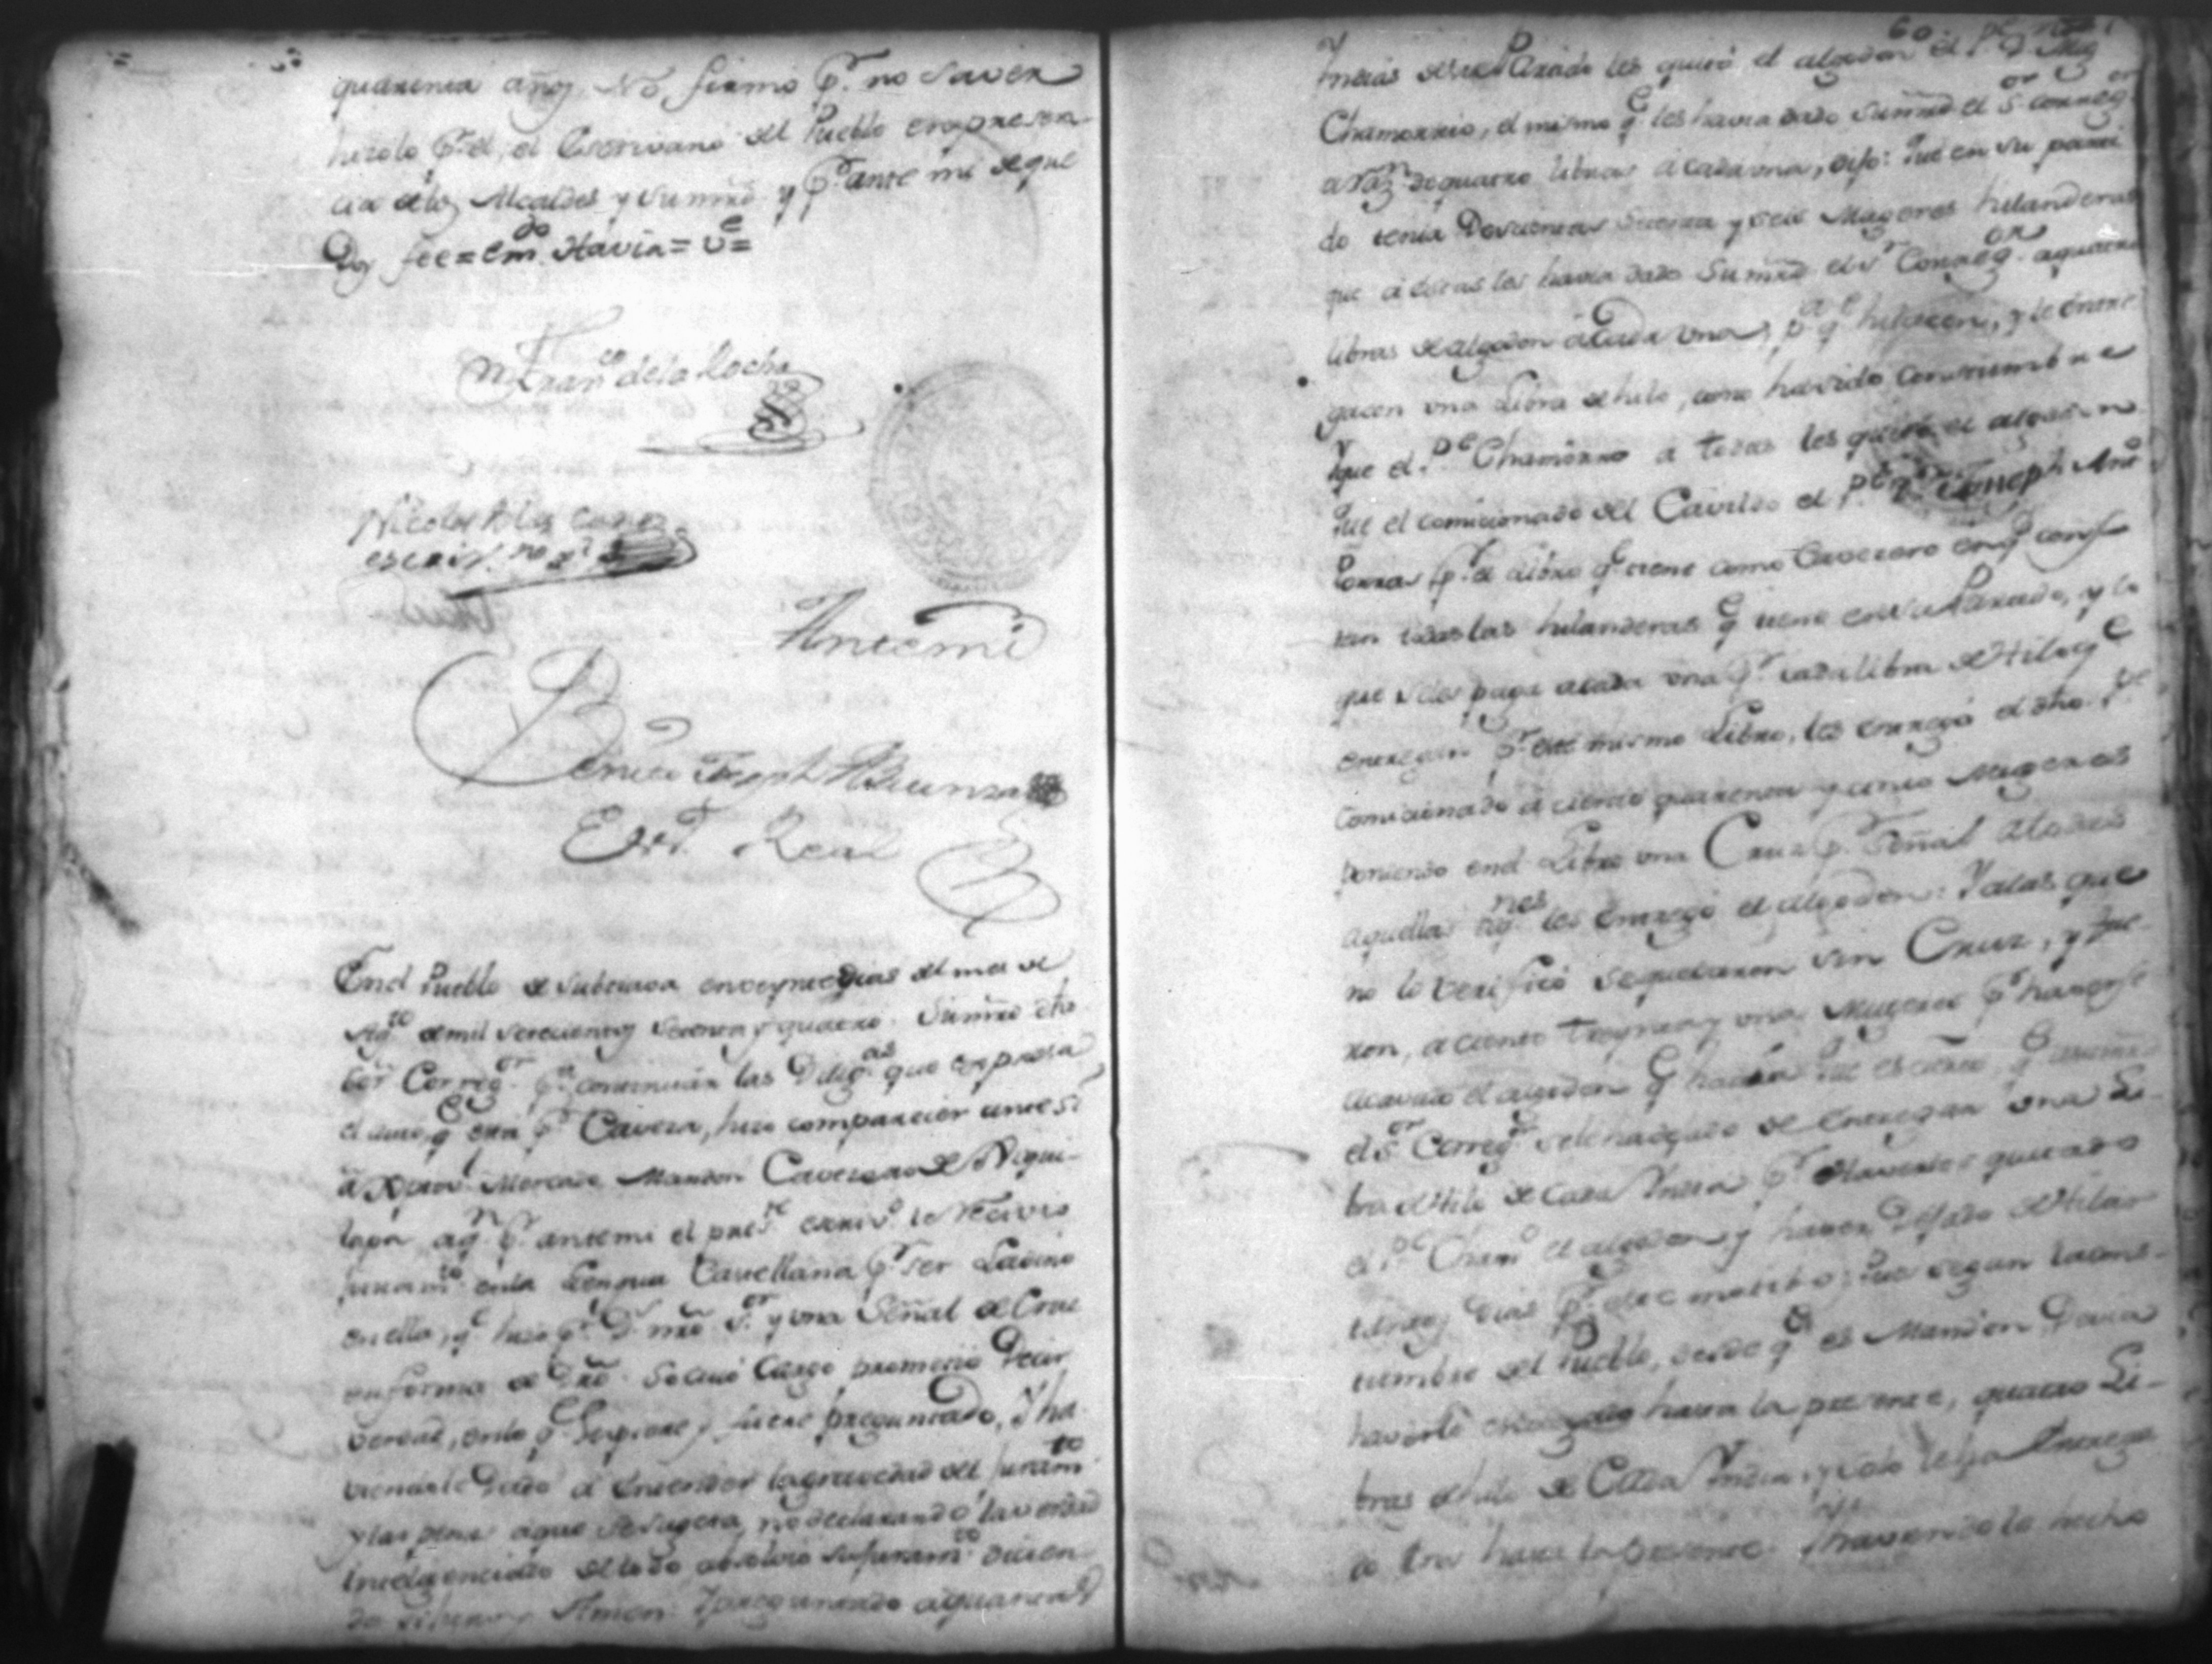 quarenta años No firmo pr. no saver
hizolo pr. el, el Escrivano del Pueblo en presen
cia de los Alcaldes y Sumrd. y pr. ante mi de que
Doy fee = emdo. Havia = Ve =
Franco. de la Rocha
Nicolas
escriv.no
Antemi
Benito Joseph
Esno. Real
En el Pueblo de Subtiava en veynte dias del mes de
Agto. de mil setecientos setenta y quatro. Sumrd. dho.
Señor Correg.or pa. continuar las Dilig.as que expresa
el auto, qe. esta pr. Caveza, hizo comparecer ante si
a Mercado Mandon Cavezero de
aqn. pr. antemi el preste. escrivo. le recivio
juramto. en la Lengua Castellana pr. ser Ladino
en ella, qe. hizo pr. Ds. nro. Sor. y una Señal de Cruz
en forma de Dro. so cuio Cargo prometio Decir
verdad, en lo qe. Supiere y fuere preguntado, Y ha
viendole Dado a Entender la gravedad del juramto.
y las penas a que se sugeta, no declarando la verdad
Inteligenciado de todo absolvio su juramto. dicien
do si juro y Amen: Y preguntado a quantas
60
Yndias de su Parzido les quitó el algodon el Pe. Dn.
Chamorro, el mismo qe. les havia dado Sumrd. el Sor. Correg.or
a razn. de quatro libras a cada una, dijo: Que en su parci
do tenia Doscientas setenta y seis Mugeres hilanderas
que a estas les havia dado Sumrd. el Sr. Correg.or a quatro
libras de algodon a cada una, pa. qe. hilasen, y le entre
gasen una Libra de hilo, como ha sido constumbre
Y que el Pe. Chamorro a todas les quitó el algodon
Que el comicionado del Cavildo el Pe. Dn. Joseph Anto.
Porras pr. el Libro qe. tiene como Cavezero en qe. cons
tan todas las hilanderas qe. tiene en su Parzido, y lo
que se les paga a cada una pr. cada libra de Hilo qe.
entregan pr. este mismo Libro, les entregó el dho. Pe.
Comicionado a ciento quarenta y cinco Mugeres
poniendo en el Libro una Cruz pr. Señal a todas
aquellas a qnes. les Entregó el algodon: Y a las que
no lo verificó se quedaron sin Cruz, y fue
ron, a ciento treynta y una Mugeres pr. haverse
acavado el algodon qe. havia Que es cierto, qe. a Sumrd.
el Sor. Correg.or se le ha dejado de Entregar una Li
bra de Hilo de cada Yndia pr. Haverles quitado
el Pe. Chamo. el algodon y haver Dejado de Hilar
tantos Dias pr. este motibo; Que segun la cons
tumbre del Pueblo, desde qe. es Mandon, Devia
haverle entregado hasta la presente, quatro Li
bras de hilo de Cada Yndia, y solo le ha Entrega
do tres hasta la presente. Y haviendole hecho